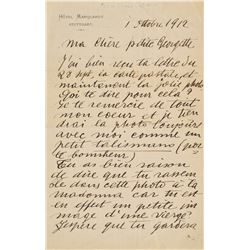 HÔTEL MARQUARDT
STUTTGART
1 Octobre 1912
Ma chère petite Georgette
J'ai bien reçu ta lettre du
28 Sept. la carte postale, et
maintenant la jolie photo
Que te dire pour cela?
Je te remercie de tout
mon coeur et je tien
drai la photo toujours
avec moi comme un
petit talisman (por
te bonheur)
Tu as bien raison
de dire que tu ressem
ble dans cette photo à la
madonna car tu est
en effet un petite im
mage d'une vierge!
J'espère que tu gardera